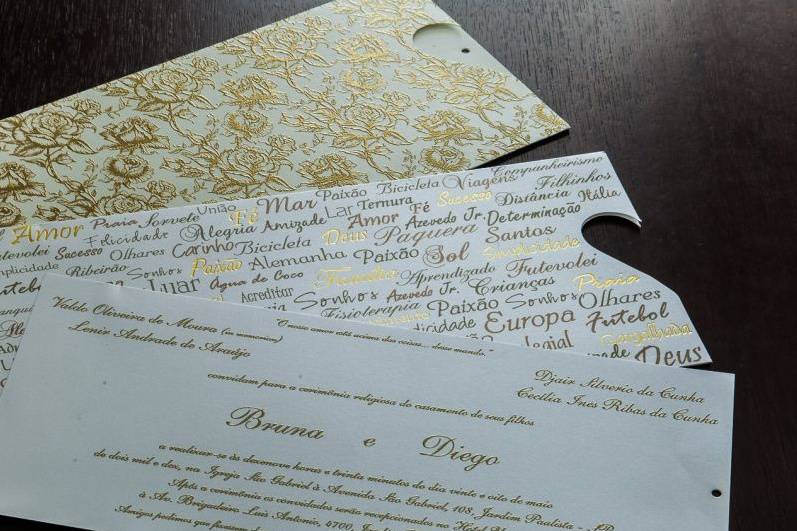 União
Paixão Bicicleta Viagens Companheirismo
Amor Praia Sorvete Fé Mar Lar Ternura Fé Sucesso Distância Filhinhos
Itália
Futevolei Felicidade Alegria Amizade Amor Azevedo Jr. Determinação
Sucesso Olhares Carinho Bicicleta Deus Paquera Santos
Simplicidade Ribeirão Sonhos Paixão Alemanha Paixão Sol Simplicidade
Luar Água de Coco Família Aprendizado Futevolei
Acreditar Sonhos Azevedo Jr. Crianças Praia
Fisioterapia Paixão Sonhos Olhares
Europa Futebol
Gargalhada
Deus
Valdo Oliveira de Moura (in memorian)
Lenir Andrade de Araújo
"O nosso amor está acima das coisas... desse mundo."
Djair Silverio da Cunha
Cecília Ines Ribas da Cunha
convidam para a cerimônia religiosa do casamento de seus filhos
Bruna e Diego
a realizar-se às dezenove horas e trinta minutos do dia vinte e oito de maio
de dois mil e dez, na Igreja São Gabriel à Avenida São Gabriel, 108, Jardim Paulista - SP
Após a cerimônia os convidados serão recepcionados no Hotel
à Av. Brigadeiro Luis Antonio, 4700,
Amigos pedimos que